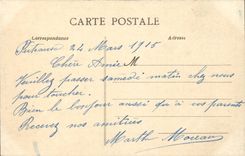 CARTE POSTALE
Correspondance Adresse
24 Mars 1915
Chère Amie M
Veuillez passer samedi matin chez nous
pour toucher.
Bien le bonjour aussi qu'à vos parents
Recevez nos amitiées
Marthe Moreau